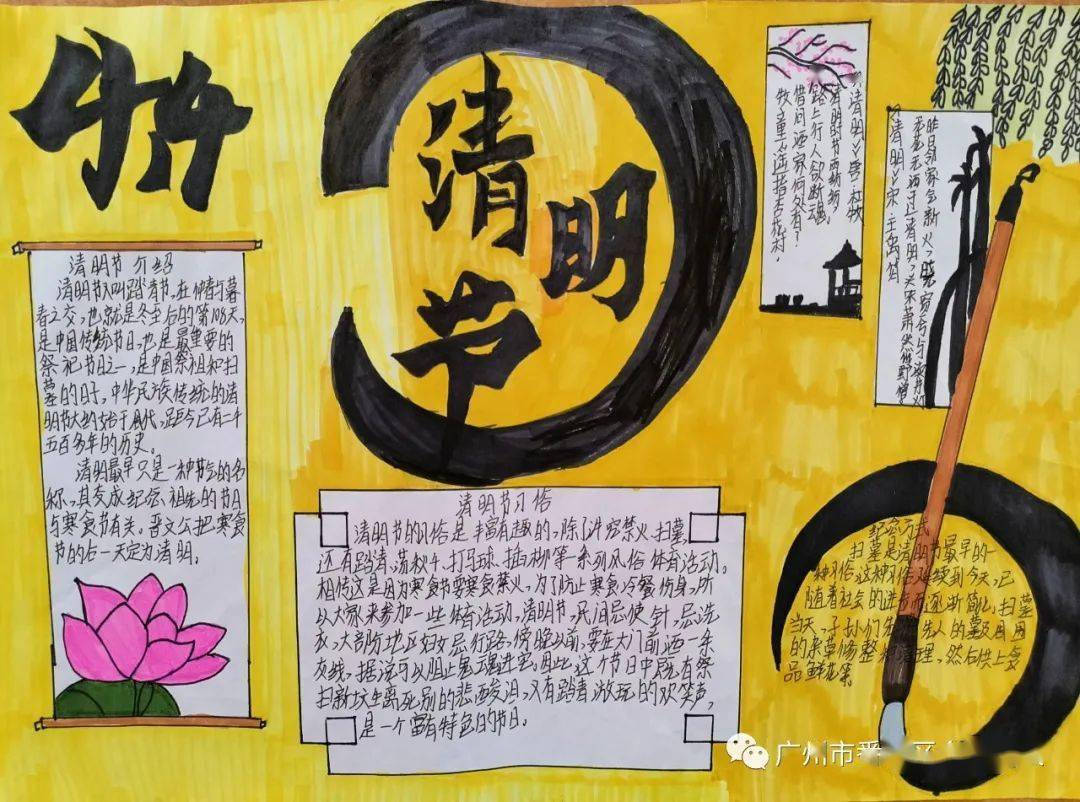 4.4
清明节
清明节 介绍
清明节又叫踏青节,在仲春与暮
春之交,也就是冬至后的第108天,
是中国传统节日,也是最重要的
祭祀节日之一,是中国祭祖和扫
墓的日子,中华民族传统的清
明节大约始于周代,距今已有二千
五百多年的历史。
清明最早只是一种节气的名
称,其变成纪念祖先的节日
与寒食节有关。晋文公把寒食
节的后一天定为清明。
清明节习俗
清明节的习俗是丰富有趣的,除了讲究禁火、扫墓,
还有踏青、荡秋千、打马球、插柳等一系列风俗体育活动。
相传这是因为寒食节要寒食禁火,为了防止寒食冷餐伤身,所
以大家来参加一些体育活动,清明节,民间忌使针,忌洗
衣,大部份地区妇女忌行路,傍晚以前,要在大门前洒一条
灰线,据说可以阻止鬼魂进宅。因此,这个节日中既有祭
扫新坟生离死别的悲酸泪,又有踏青游玩的欢笑声,
是一个富有特色的节日。
《清明》 唐·杜牧
清明时节雨纷纷,
路上行人欲断魂,
借问酒家何处有?
牧童遥指杏花村。
《清明》宋·王禹偁
无花无酒过清明,兴味萧然似野僧
昨日邻家乞新火,晓窗分与读
纪念方式
扫墓是清明节最早的一
种习俗,这种习俗延续到今天,已
随着社会的进步而逐渐简化,扫墓
当天,子孙们先 先人的墓及周围
的杂草修整和清理,然后供上食
品鲜花等。
广州市番